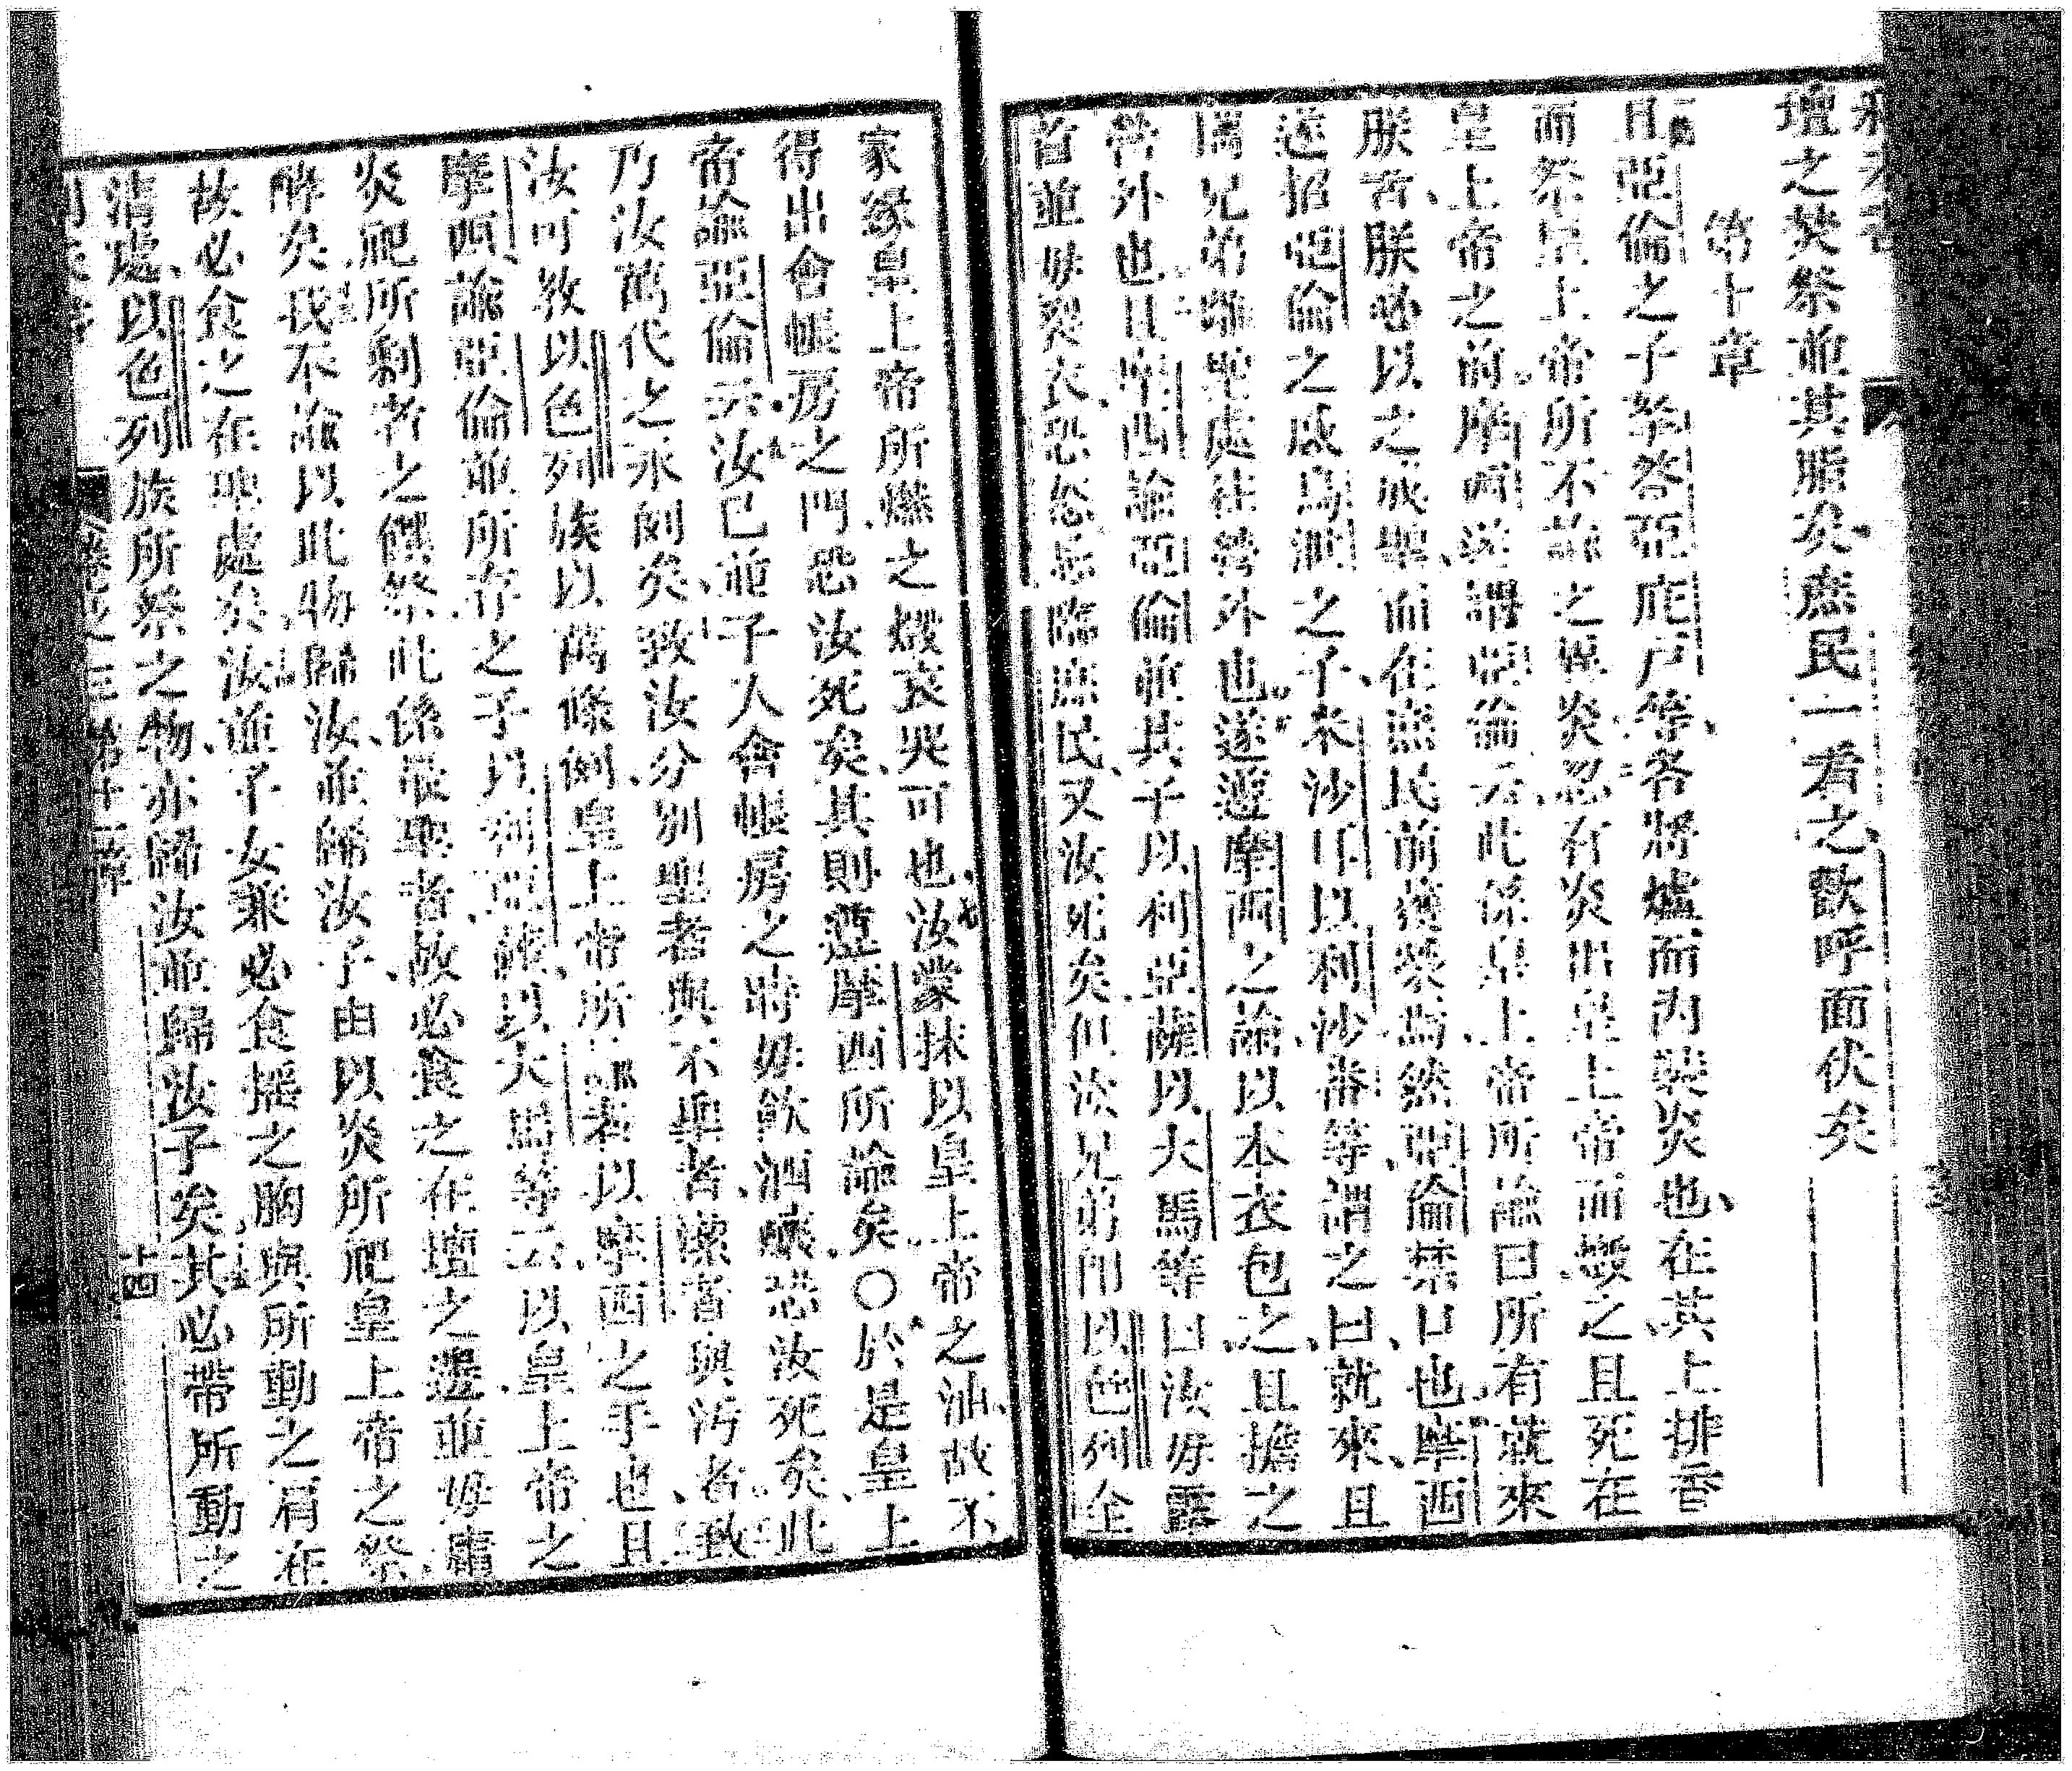 壇之焚祭並其脂矣庶民一看之歡呼面伏矣
第十章
且亞倫之子拏答亞庇戶等各將爐而內裝炎也在其上排香
而祭皇上帝所不諭之異炎忽有炎出皇上帝而燬之且死在
皇上帝之前摩西遂謂亞倫云此係皇上帝所諭曰所有就來
朕者朕必以之成聖而在庶民前獲榮焉然亞倫禁口也摩西
遂招亞倫之叔烏泄之子米沙以利沙番等謂之曰就來且
攜兄弟離聖處往營外也遂遵摩西之諭以本衣包之且擔之
營外也且摩西諭亞倫並其子以利亞薩以大馬等曰汝毋露
首並毋裂衣恐忿怒臨庶民又汝死矣但汝兄弟即以色列全
家緣皇上帝所燃之燬哀哭可也汝蒙抹以皇上帝之油故不
得出會帳房之門恐汝死矣其則遵摩西所諭矣〇於是皇上
帝諭亞倫云汝已並子入會帳房之時毋飲酒醺恐汝死矣此
乃汝萬代之永例矣致汝分別聖者與不聖者潔者與污者致
汝可教以色列族以萬條例皇上帝所諭者以摩西之手也且
摩西諭亞倫並所存之子以利亞薩以大馬等云以皇上帝之
炎爬所剩者之饌祭此係最聖者故必食之在壇之邊並毋庸
酵矣我不諭以此物歸汝並歸汝子由以炎所爬皇上帝之祭
故必食之在聖處矣汝並子女兼必食搖之胸與所動之肩在
清處以色列族所祭之物亦歸汝並歸汝子矣其必帶所動之
十四